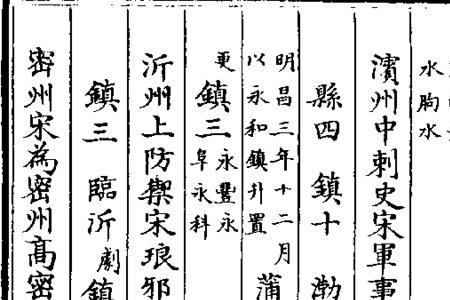 水朐水
濱州中刺史宋軍事
縣四 鎮十 渤
明昌三年十二月
以永和鎮升置
蒲
更
鎮三 永豐永
阜永科
沂州上防禦宋琅邪
鎮三 臨沂 劇 鎮
密州宋為密州高密